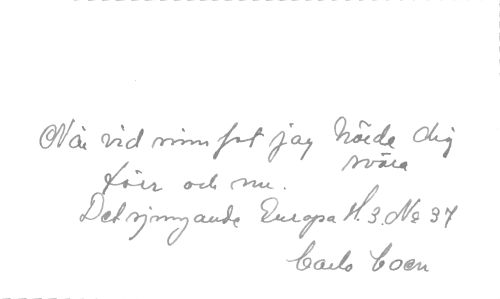 När vid min fot jag hörde dig
svära
förr och nu.
Det sjungande Europa H.3. No 37
Carlo Coen